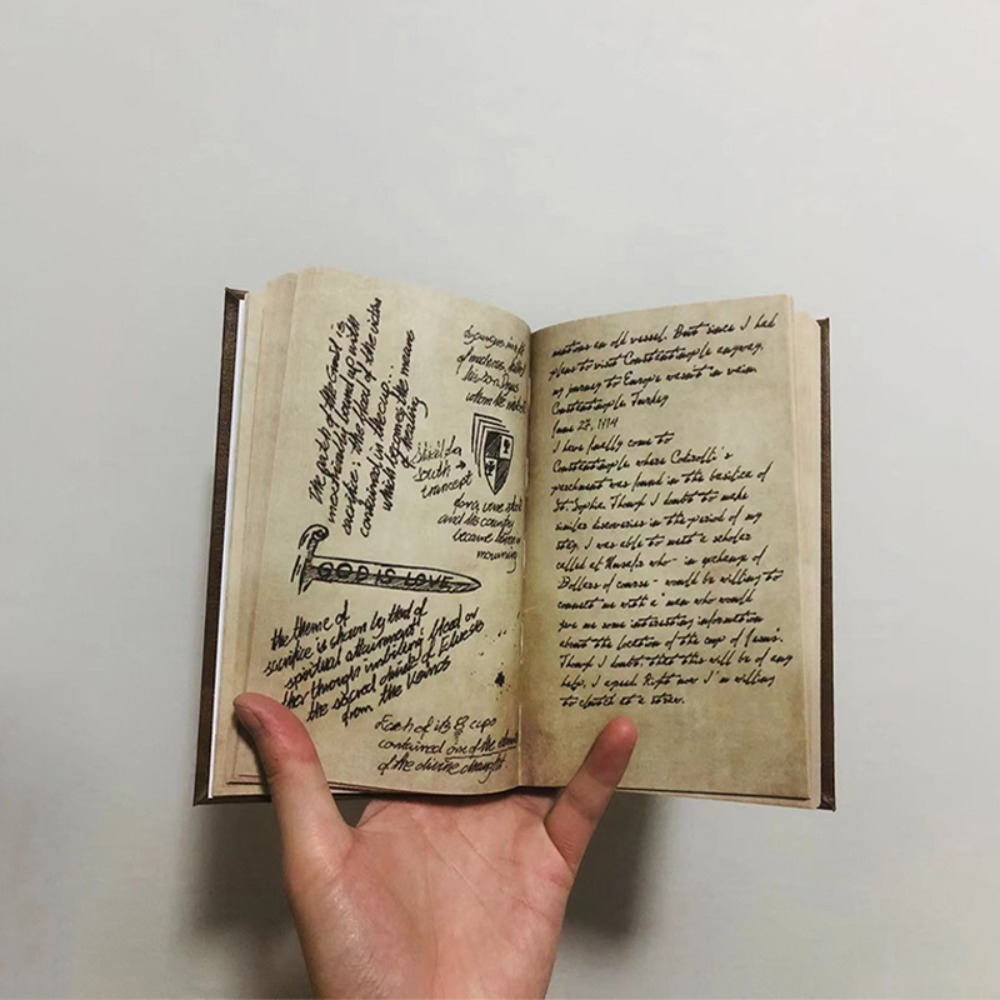 The myth of the Grail is
inextricably bound up with
sacrifice: the blood of the victim
contained in the cup...
which becomes the means
of healing
of madness, killed
his son Dryas
whom the
Shield for
South →
trancept
and its country
became
mourning
GOD IS LOVE
the theme of
sacrifice is shown by that of
spiritual attainment:
ther through imbibing blood or
the sacred drink of Eleusis
from the
Each of its 8 cups
contained one of the
of the divine draught.
mentions an old vessel. But since I had
plans to visit Constantinople anyway,
my journey to Europe wasn't in vain
Constantinople, Turkey
June 27, 1914
I have finally come to
Constantinople where
parchment was found in the basilica of
St. Sophia. Though I doubt to make
similar discoveries in the period of my
stay, I was able to meet a scholar
called who - in exchange of
Dollars of course - would be willing to
connect me with a man who would
give me some interesting information
about the location of the cup of Jesus.
Though I doubt, that this will be of any
help, I agreed. Right now I'm willing
to clutch at a straw.